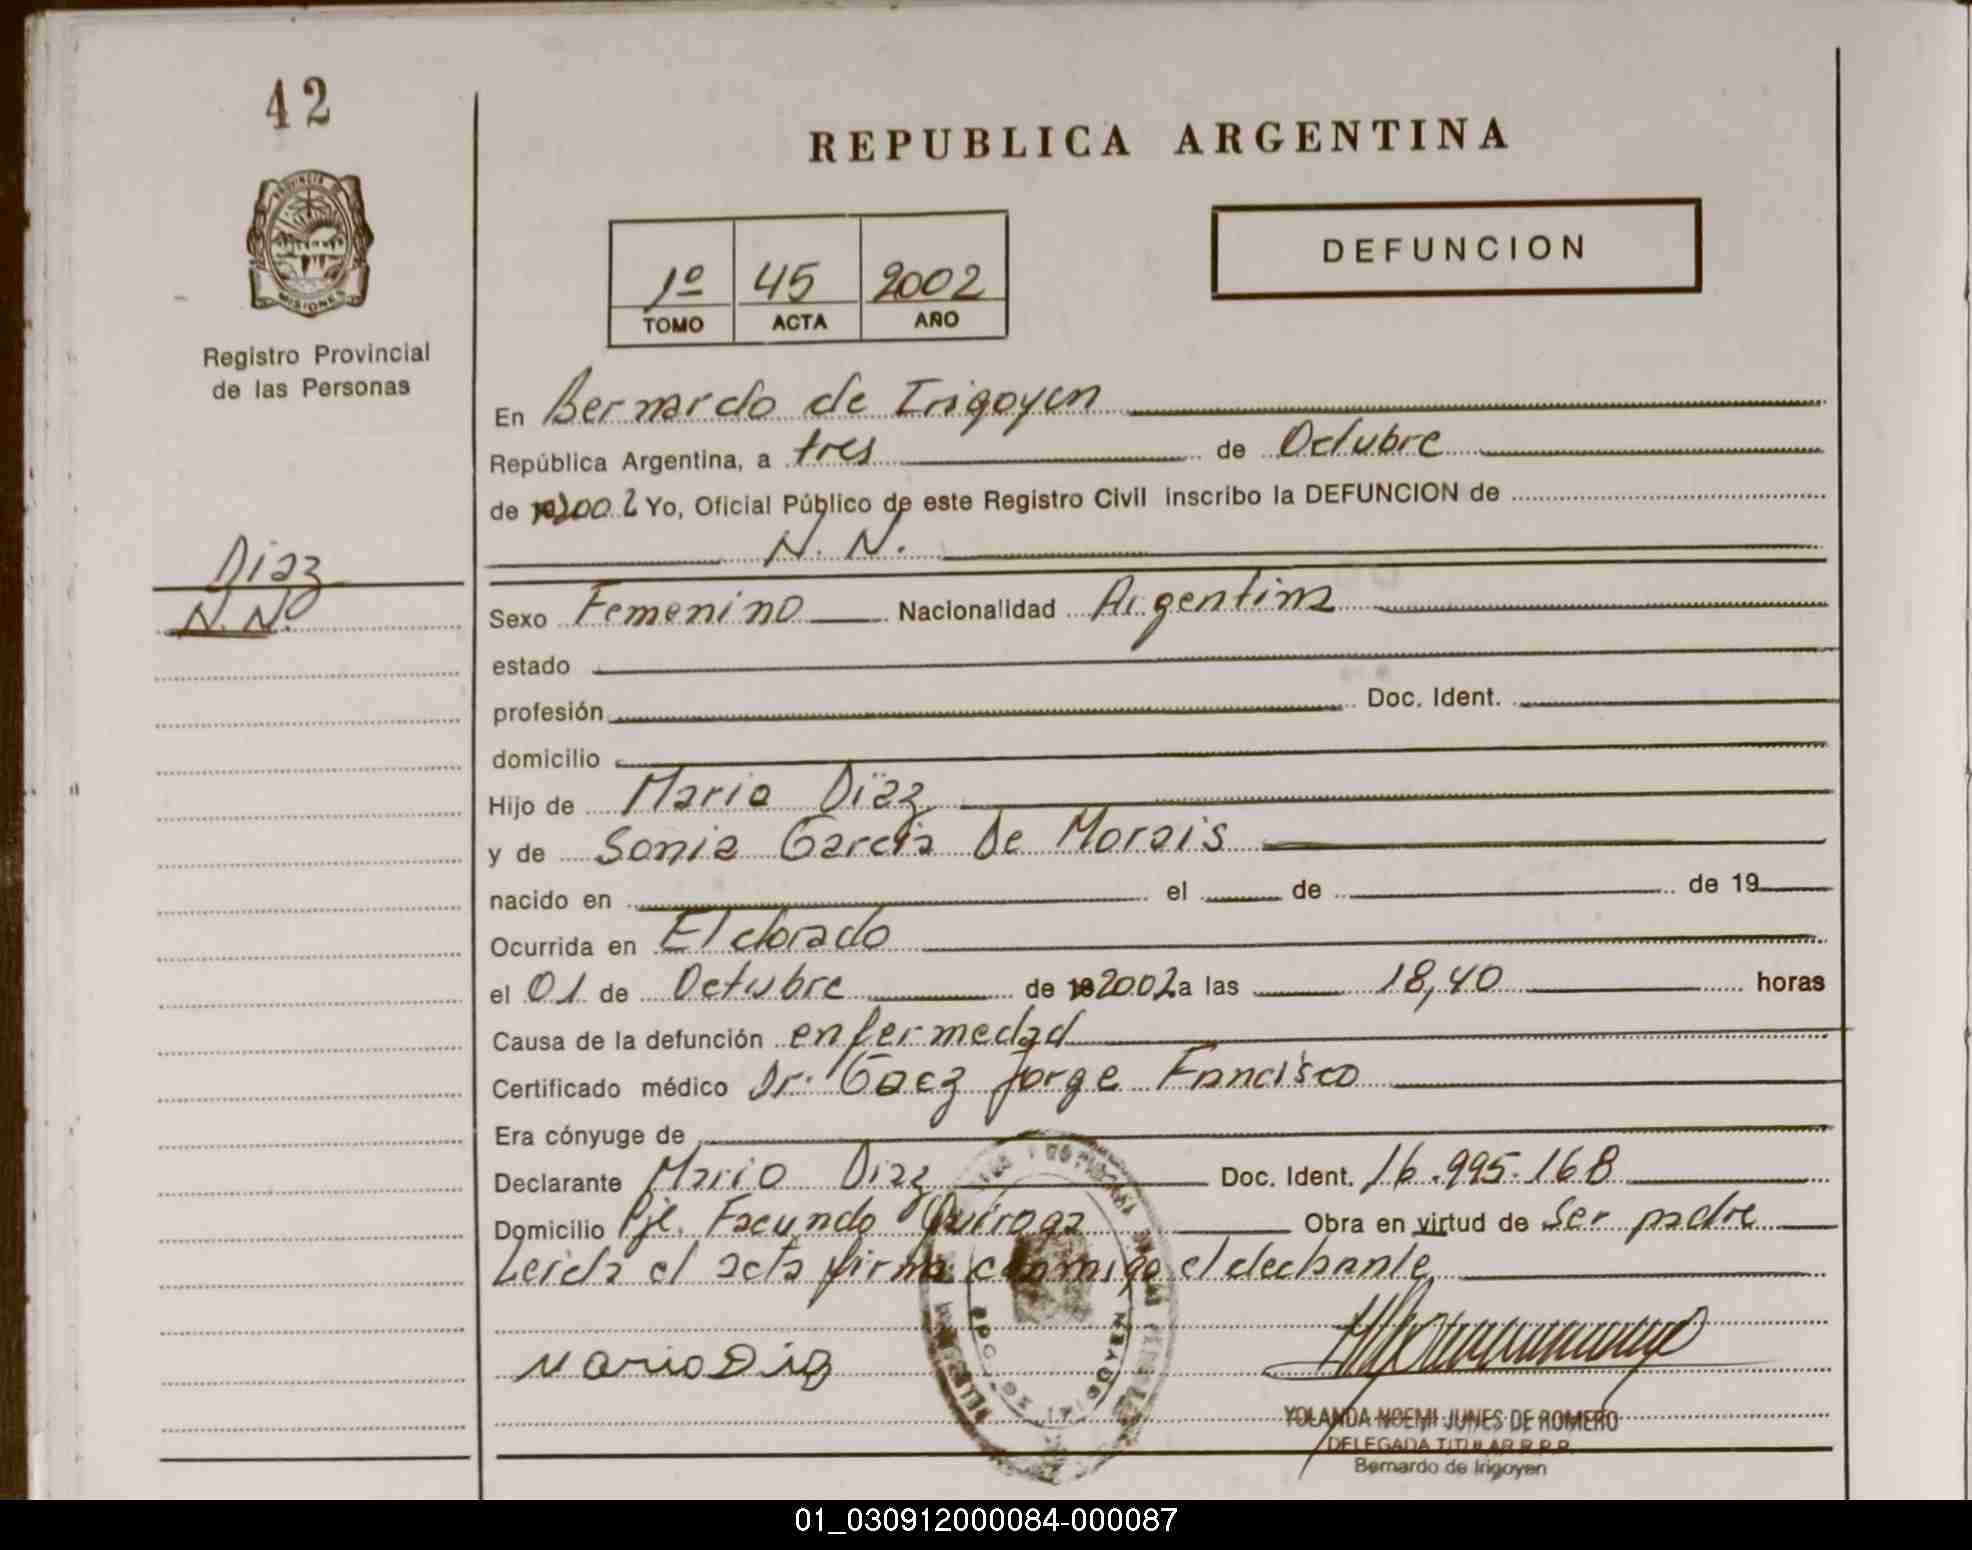 42
REPUBLICA ARGENTINA
PROVINCIA DE
MISIONES
Registro Provincial
de las Personas
1º 45 2002
TOMO ACTA AÑO
DEFUNCION
En Bernardo de Irigoyen
República Argentina, a tres de Octubre
de 2002 Yo, Oficial Público de este Registro Civil inscribo la DEFUNCION de
N. N.
Diaz
N. N.
Sexo Femenino Nacionalidad Argentina
estado
profesión Doc. Ident.
domicilio
Hijo de Mario Diaz
y de Sonia Garcia De Morais
nacido en el de de 19
Ocurrida en Eldorado
el 01 de Octubre de 2002 a las 18,40 horas
Causa de la defunción enfermedad
Certificado médico Dr. Jorge Francisco
Era cónyuge de
Declarante Mario Diaz Doc. Ident. 16.995.168
Domicilio Pje. Facundo Quiroga Obra en virtud de Ser padre
Leida el acta firma conmigo el declarante
Mario Diaz
YOLANDA NOEMI JUNES DE ROMERO
DELEGADA TITULAR R.P.P.
Bernardo de Irigoyen
01_030912000084-000087